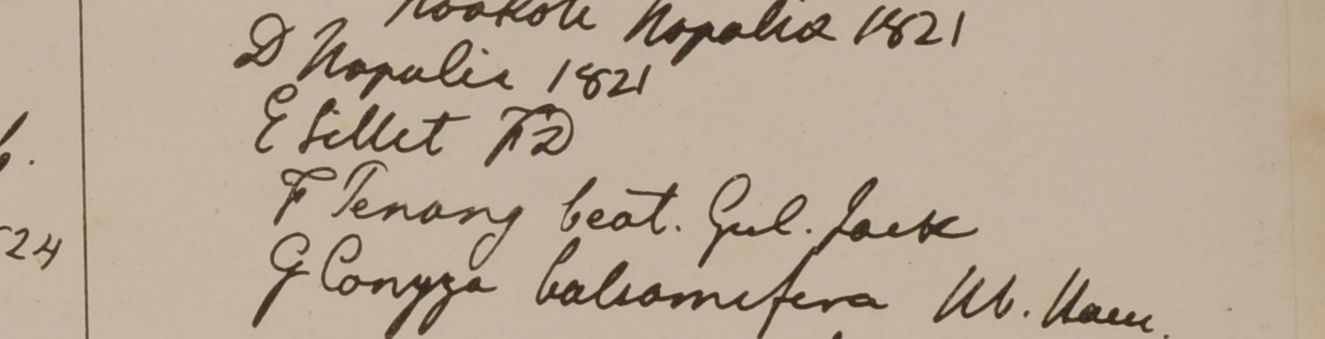 Napalia 1821
D Napalia 1821
E Sillet FD
F Penang beat. Gul. Jack
G Conyza balsamifera Hb. Ham.
24